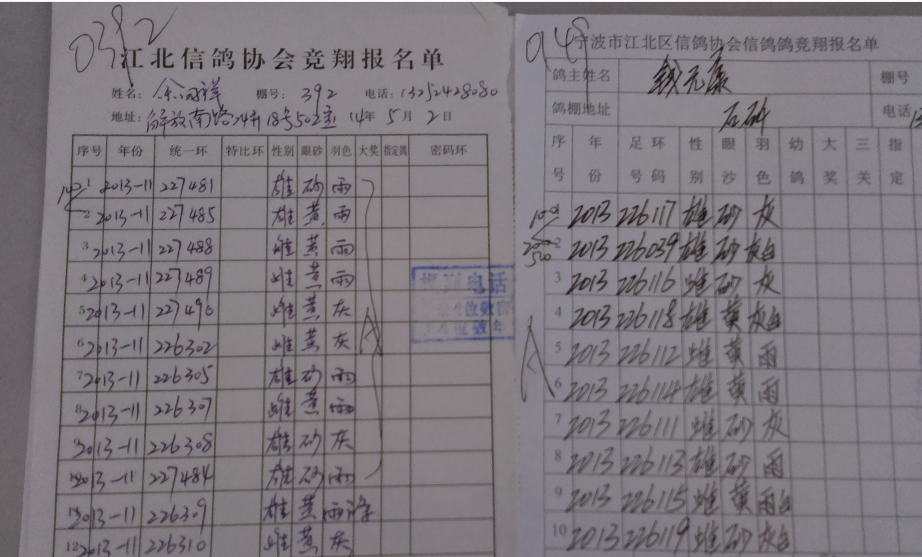 0392
江北信鸽协会竞翔报名单
姓名: 余 祥 棚号: 392 电话: 13252428080
地址: 解放南路24弄18号502室 14年 5月 2日
序号 年份 统一环 特比环 性别 眼砂 羽色 大奖 指定鸽 密码环
1 2013-11 227481 雄 砂 雨
2 2013-11 227485 雄 黄 雨
3 2013-11 227488 雌 黄 雨
4 2013-11 227489 雌 黄 雨
5 2013-11 227490 雌 黄 灰
6 2013-11 226302 雌 黄 灰
7 2013-11 226305 雄 砂 雨
8 2013-11 226307 雌 黄 雨
9 2013-11 226308 雄 砂 灰
10 2013-11 227484 雄 砂 雨
11 2013-11 226309 雄 黄 雨
12 2013-11 226310 雌 黄 灰
A
电话
位数
位数
049
宁波市江北区信鸽协会信鸽竞翔报名单
鸽主姓名 钱元康 棚号
鸽棚地址 石 电话
序号 年份 足环号码 性别 眼沙 羽色 幼鸽 大奖 三关 指定
1 2013 226117 雄 砂 灰
2 2013 226039 雄 砂 灰白
3 2013 226116 雌 砂 灰
4 2013 226118 雄 黄 灰白
5 2013 226112 雌 黄 雨
6 2013 226114 雄 黄 雨
7 2013 226111 雌 砂 灰
8 2013 226113 雄 砂 雨
9 2013 226115 雌 黄 雨白
10 2013 226119 雌 砂 灰白
A